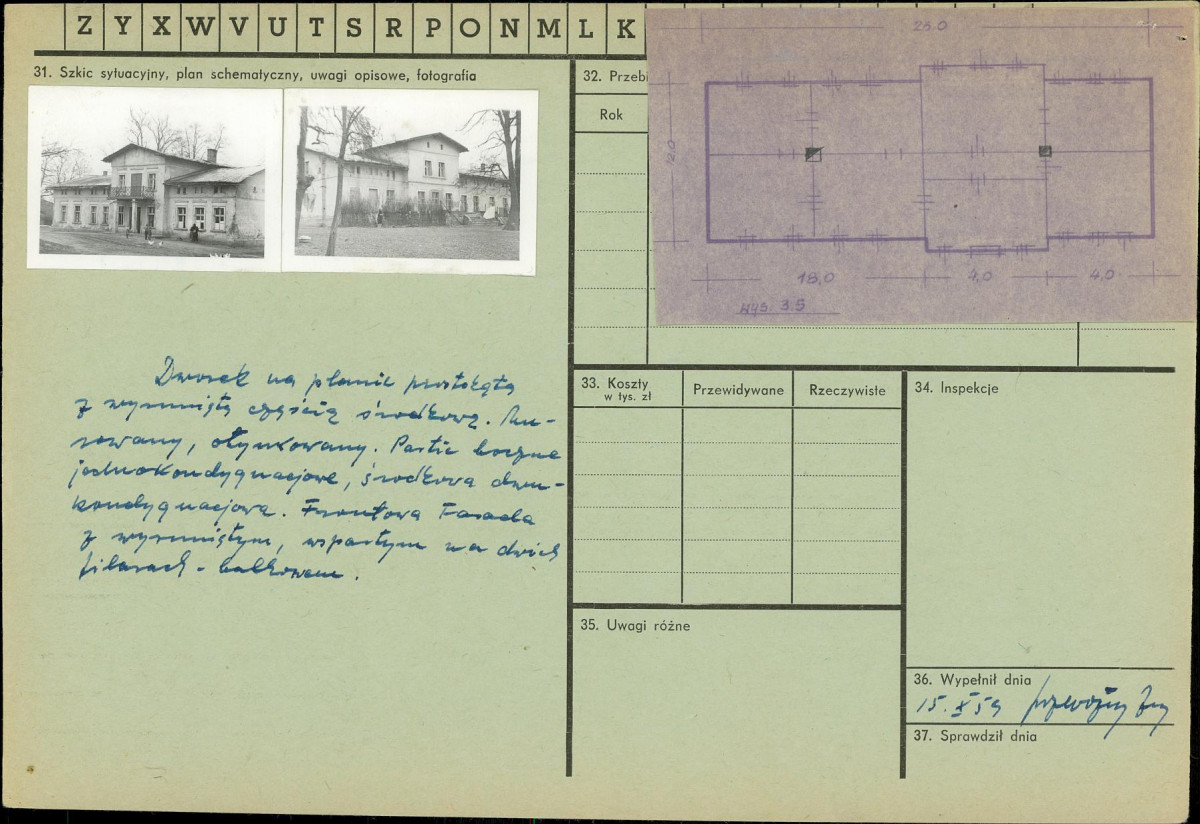 Z Y X W V U T S R P O N M L K
31. Szkic sytuacyjny, plan schematyczny, uwagi opisowe, fotografia
Dworek na planie prostokąta
z wysuniętą częścią środkową. Mu-
rowany, otynkowany. Partie boczne
jednokondygnacjowe, środkowa dwu-
kondygnacjowa. Frontowa Fasada
z wysuniętym, wspartym na dwóch
filarach - balkonem.
32. Przebi
Rok
18,0
4,0
4,0
wys. 3.5
33. Koszty
w tys. zł
Przewidywane
Rzeczywiste
34. Inspekcje
35. Uwagi różne
36. Wypełnił dnia
15. X 59
37. Sprawdził dnia